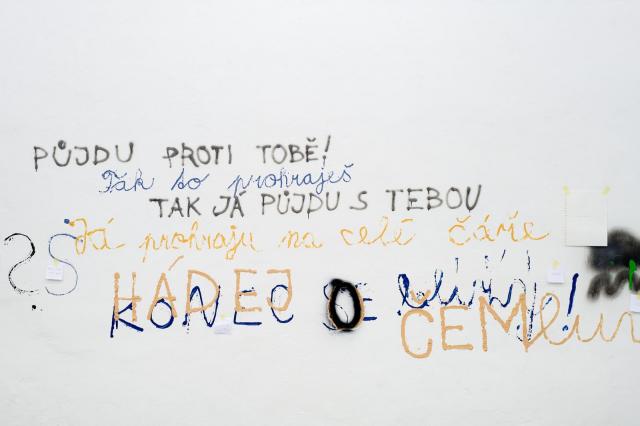 PŮJDU PROTI TOBĚ!
Tak to prohraješ
TAK JÁ PŮJDU S TEBOU
Já prohraju na celé čáře
HÁDEJ O ČEM
KONEC SE